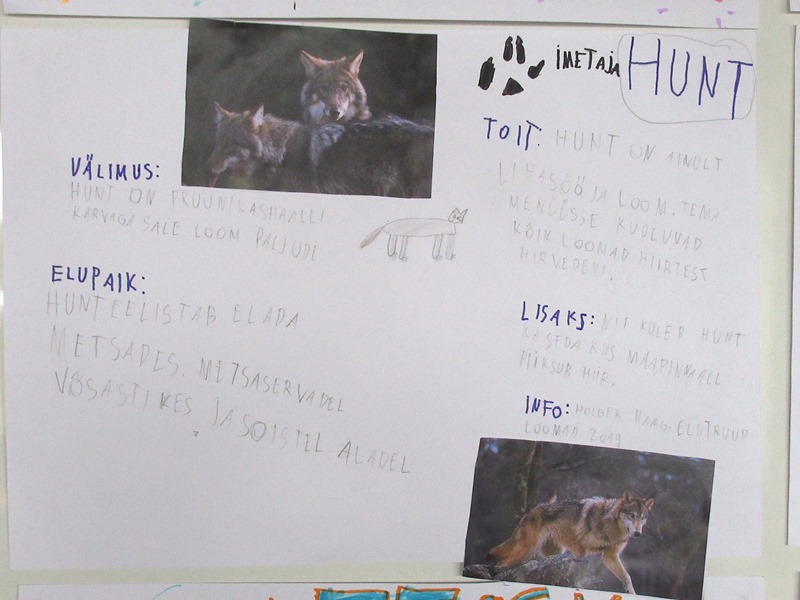 IMETAJA HUNT
VÄLIMUS:
HUNT ON PRUUNIKASHAALLI
KARVAGA SALE LOOM PALJUDE
ELUPAIK:
HUNT EELISTAB ELADA
METSADES, METSASERVADEL
VÕSASTIKES JA SOISTEL ALADEL
TOIT: HUNT ON AINULT
LIHASÖÖJA LOOM. TEMA
MENÜÜSSE KUULUVAD
KÕIK LOOMAD HIIRTEST
HIRVEDENI.
LISAKS: NII KULEB HUNT
KA SEDA KUS MAAPINNAALL
PIIKSUB HIIR.
INFO: HOLGER HAAG, ELUTRUUD
LOOMAD. 2019